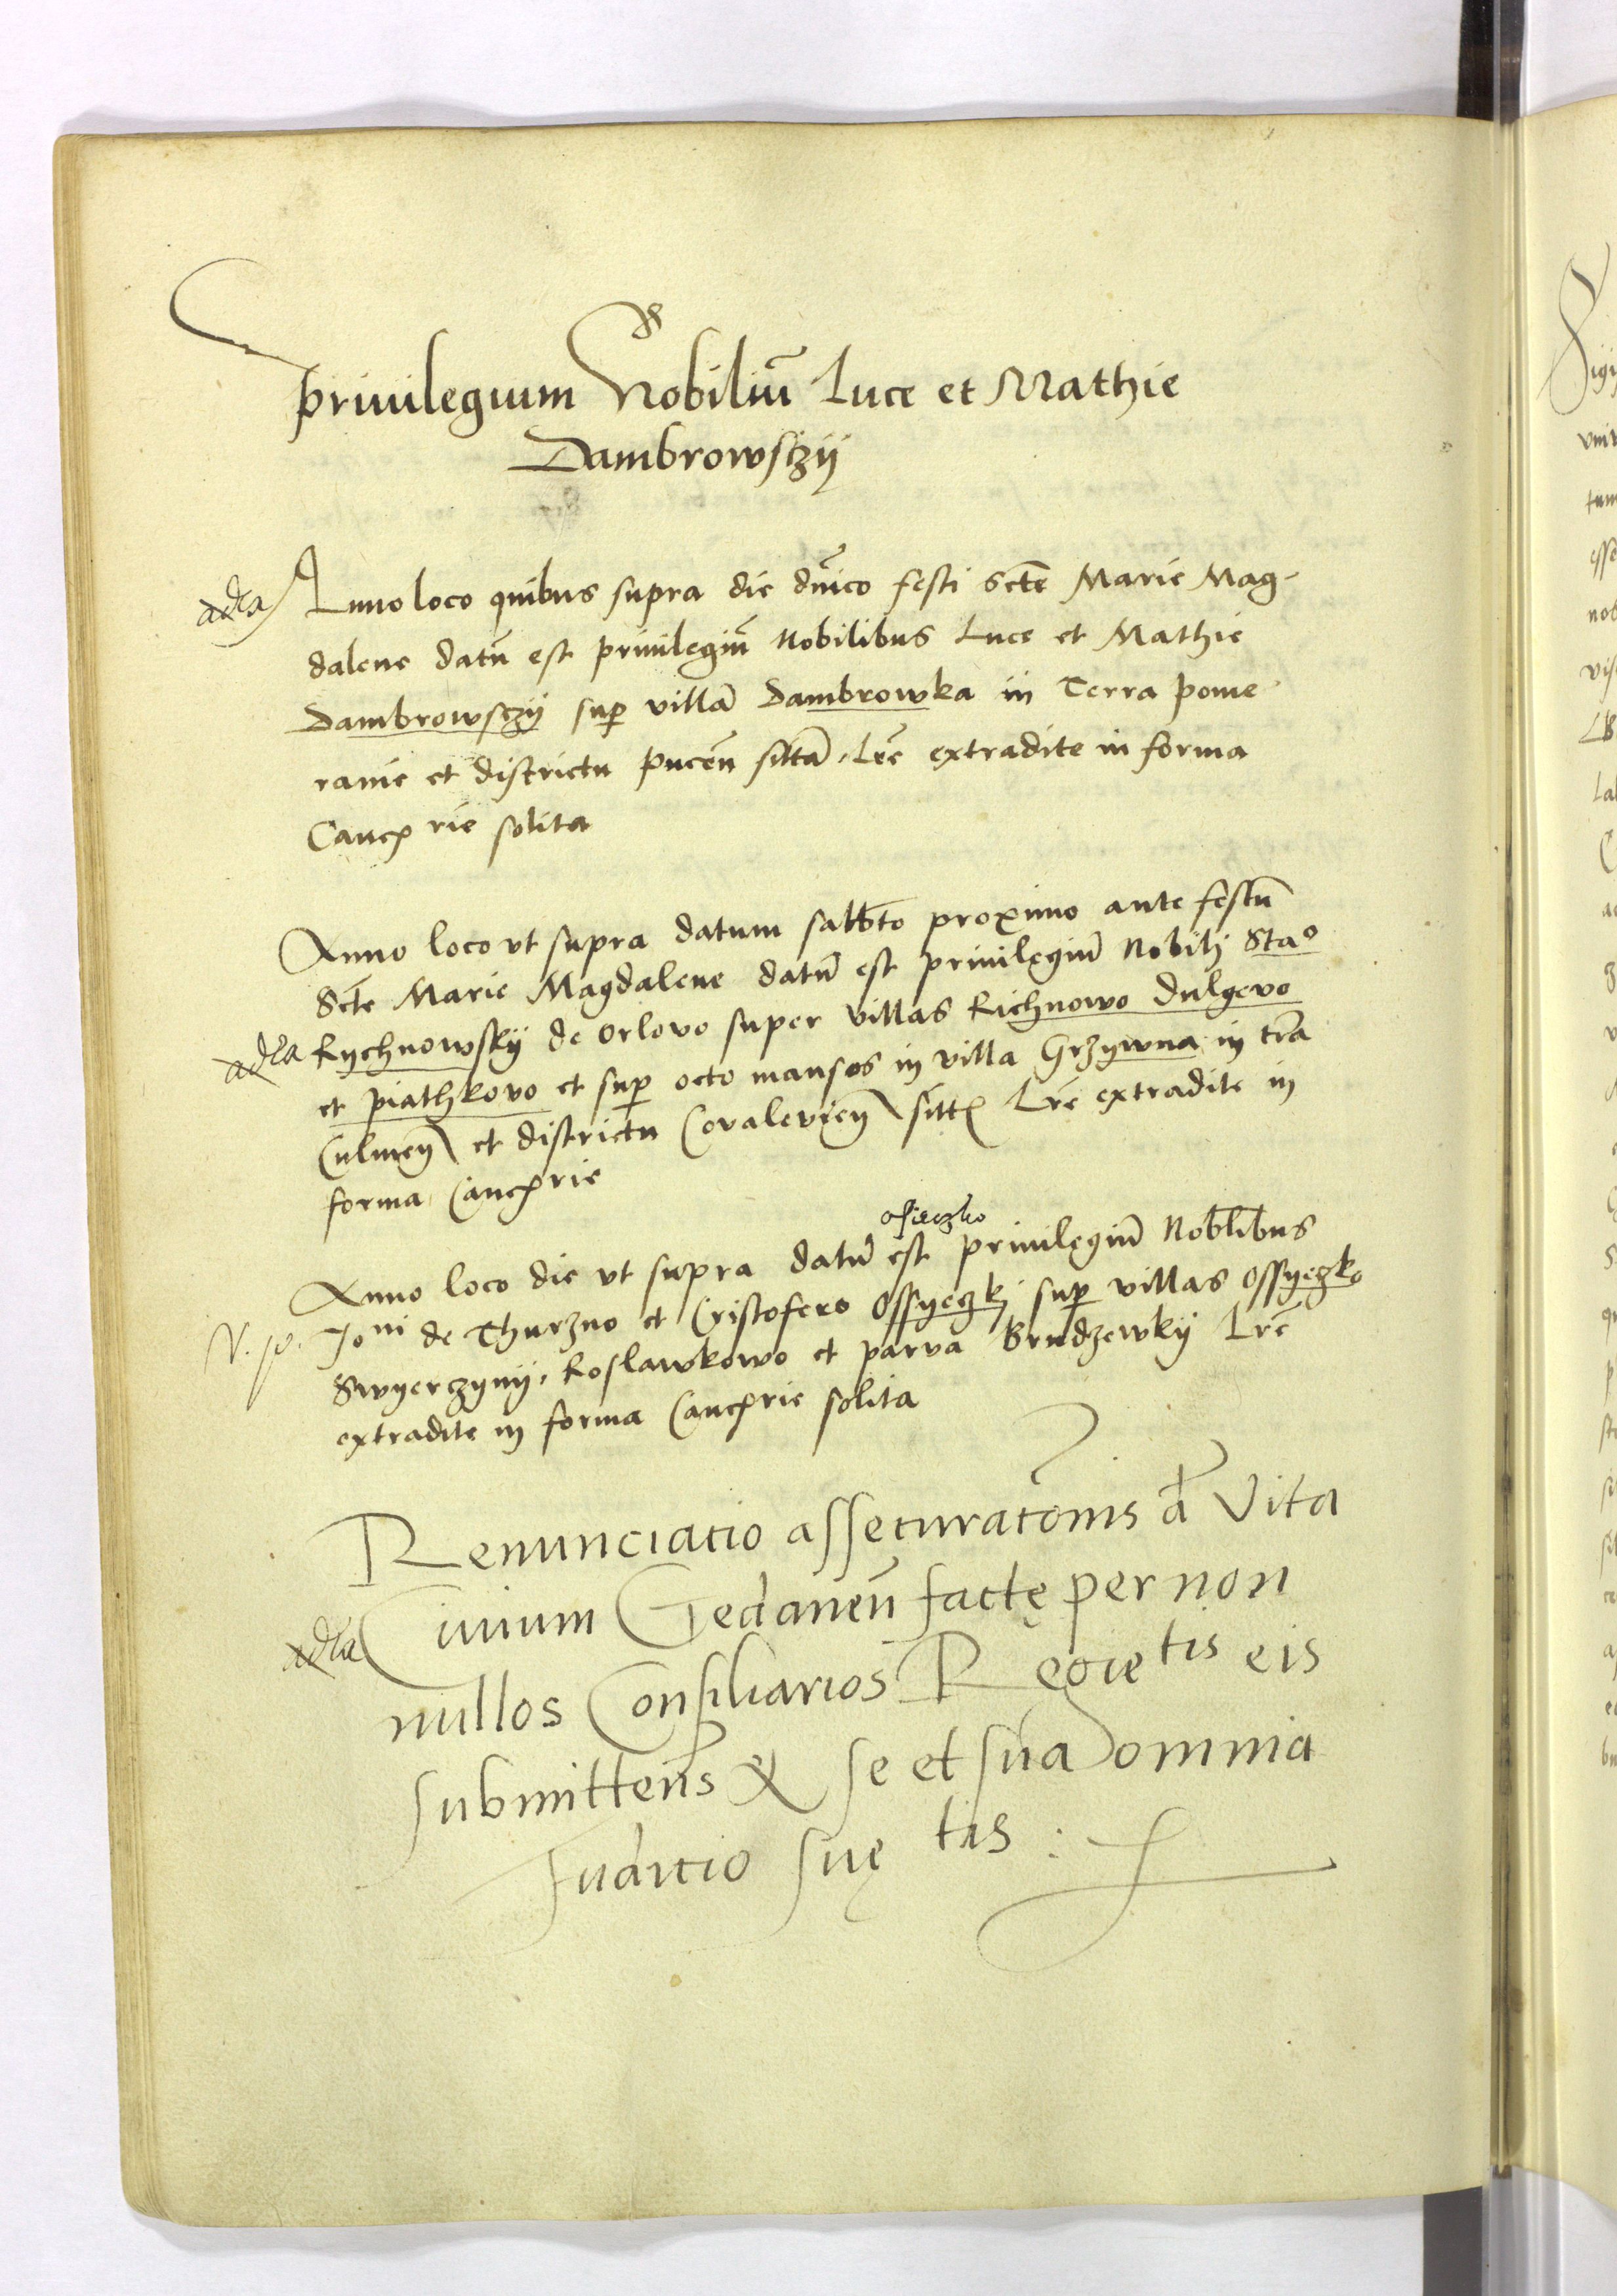 privilegium Nobiliū Luce et Mathie
Dambrowsczÿ
Anno loco quibus supra die dn̄ico festi Sctē Marie Mag-
dalene datū est priuilegiū Nobilibus Luce et Mathie
Dambrowsczÿ sup villā Dambrowka in Terra pome
ranie et districtu pucēn sittā. Lrē extradite in forma
Cancꝛie solita
Anno loco vt supra datum sabbto proximo ante festū
Sctē Marie Magdalene datū est priuilegiū Nobili Stao
Rychnowskÿ de Orlovo super villas Richnowo Dulgevo
et piathkovo et sup octo mansos in villa Grzywna in trā
Culmeñ et districtu Covalevieñ sitt Lrē extradite in
forma Cancꝛie
osieczko
Anno loco die vt supra datū est priuilegiū Nob̄libus
Ioni de Thurzno et Cristofero Ossyeczkj sup villas Ossyeczko
Swyerczynÿ, Koslawkowo et parva Brudzewkÿ Lrē
extradite in forma Cancꝛie solita
Renunciatio assecuratōnis ā Vita
Ciuium Gedaneñ factę per non
nullos Consiliarios Regie tis eis
submitteñs & se et sua omnia
Iudicio suę tis :